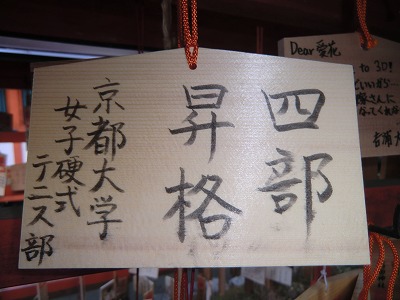 四部
昇格
京都大学
女子硬式
テニス部
Dear 愛花
to 30!